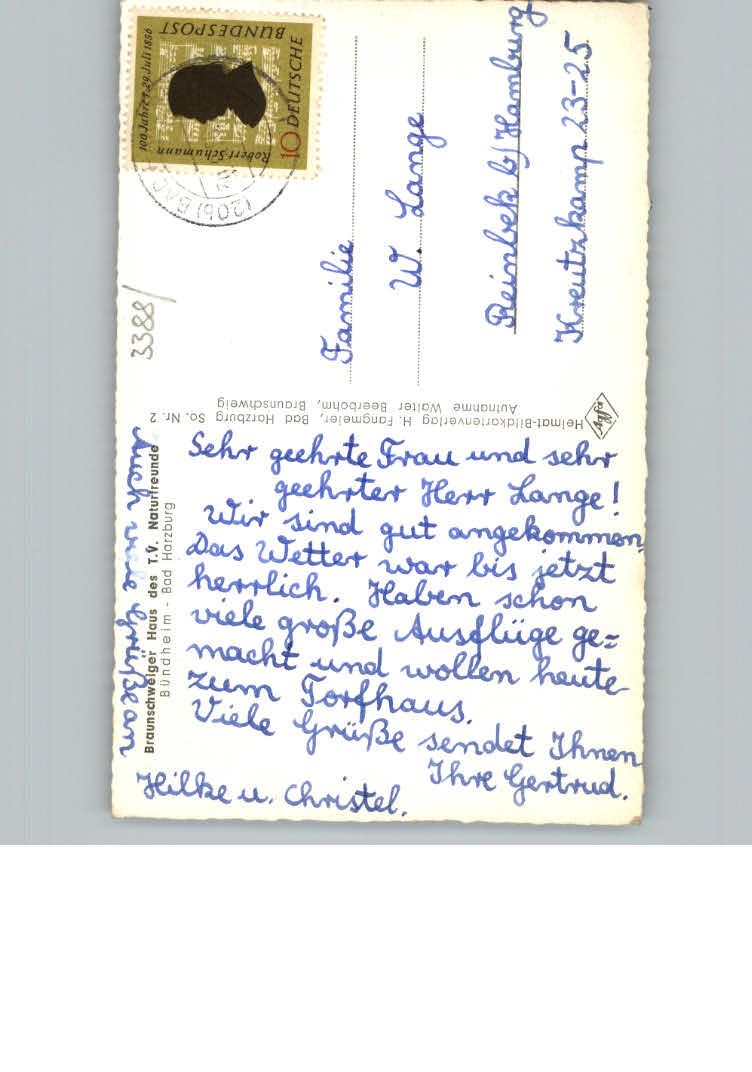 DEUTSCHE
BUNDESPOST
10
100 Jahre † 29. Juli 1856
Robert Schumann
(20b) BA
3388/
Familie
W. Lange
Reinbek b/Hamburg
Kreutzkamp 23-25
Agfa
Heimat-Bildkartenverlag H. Fangmeier, Bad Harzburg So. Nr. 2
Aufnahme Walter Beerbohm, Braunschweig
Braunschweiger Haus des T.V. Naturfreunde
Bündheim - Bad Harzburg
Sehr geehrte Frau und sehr
geehrter Herr Lange!
Wir sind gut angekommen.
Das Wetter war bis jetzt
herrlich. Haben schon
viele große Ausflüge ge=
macht und wollen heute
zum Torfhaus.
Viele Grüße sendet Ihnen
Ihre Gertrud.
Auch viele Grüße an
Hilke u. Christel.